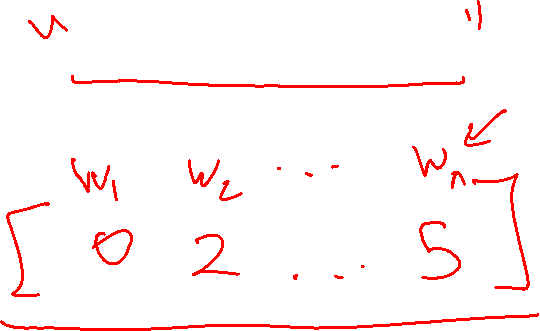 " "
w₁ w₂ ... wₙ
[ 0 2 ... 5 ]